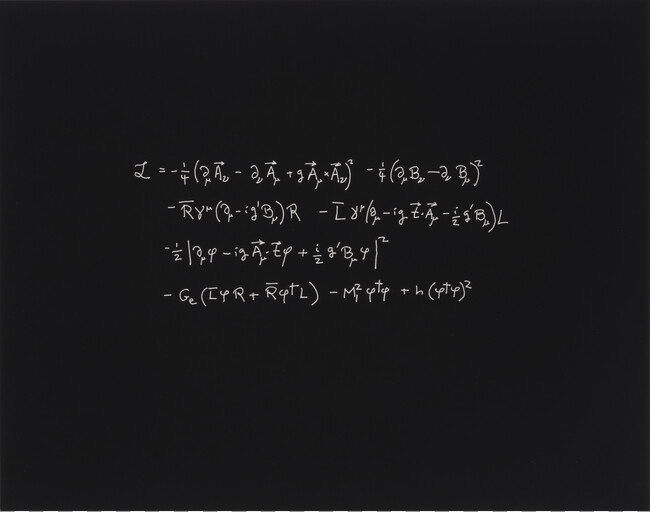 ℒ = -¼(∂_μ A⃗_ν - ∂_ν A⃗_μ + g A⃗_μ × A⃗_ν)² - ¼(∂_μ B_ν - ∂_ν B_μ)²
- R̄ γ^μ (∂_μ - i g' B_μ) R - L̄ γ^μ (∂_μ - i g t⃗·A⃗_μ - i/2 g' B_μ) L
- ½ |∂_μ φ - i g A⃗_μ·t⃗ φ + i/2 g' B_μ φ|²
- G_e (L̄ φ R + R̄ φ† L) - M₁² φ†φ + h (φ†φ)²